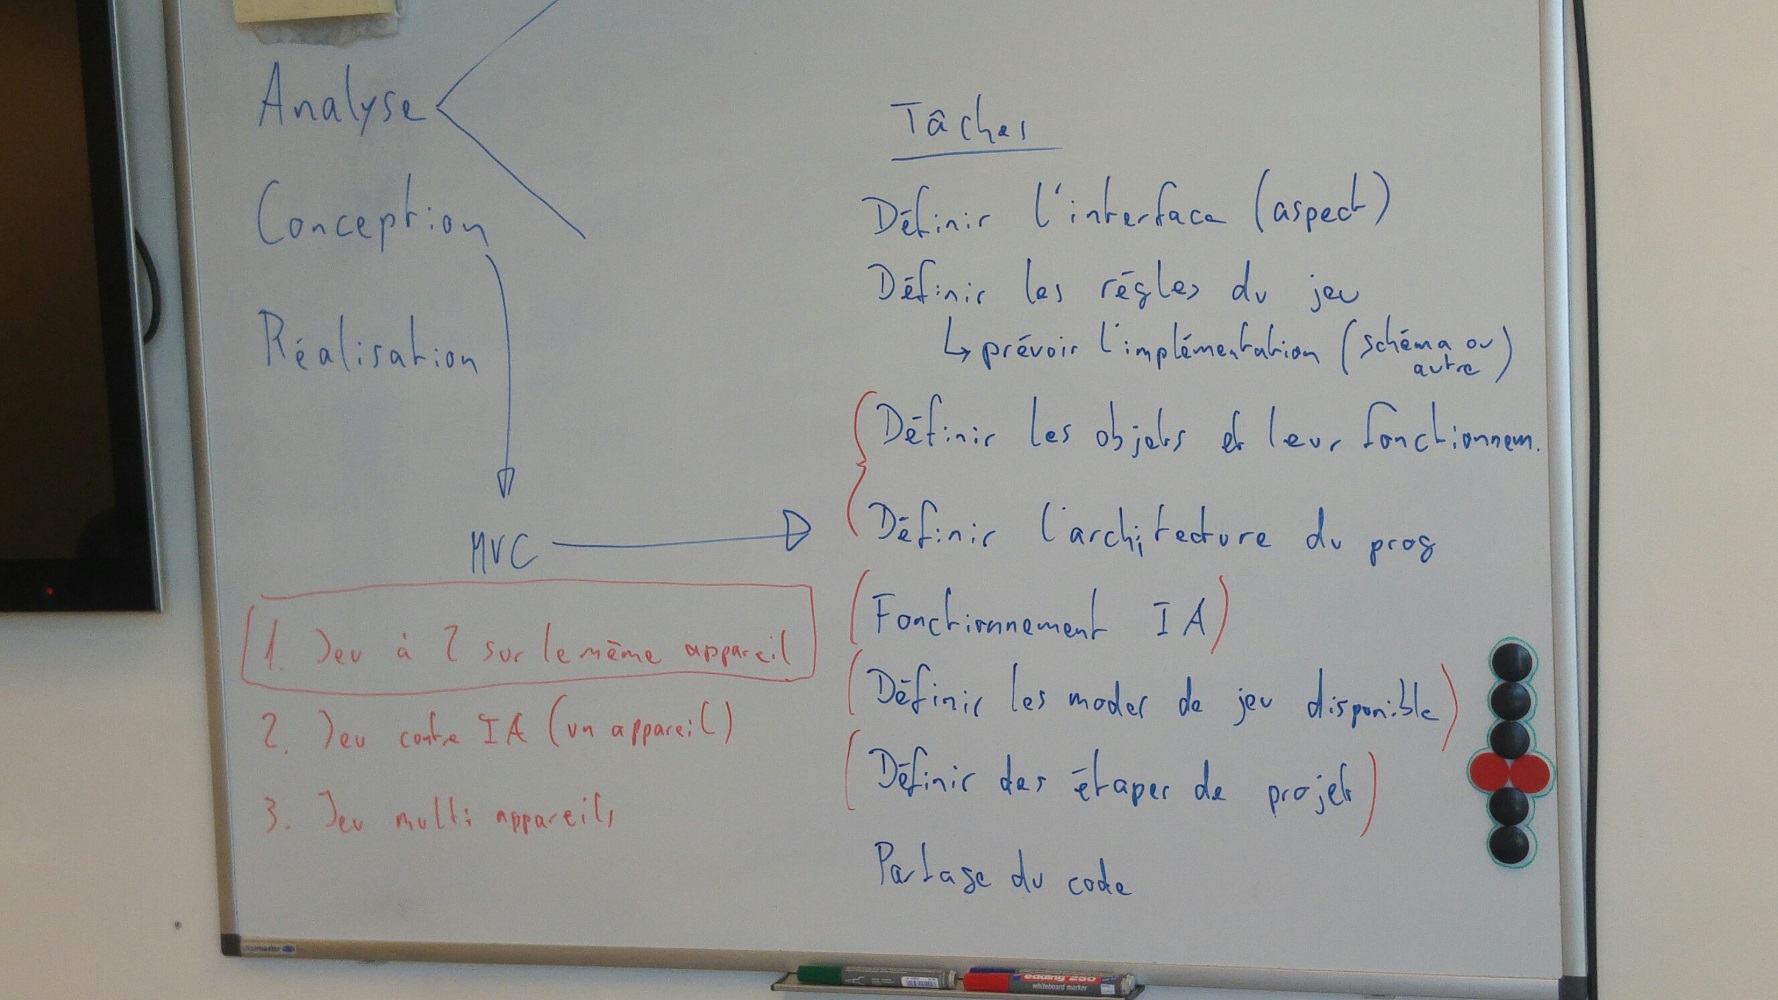 Analyse
Conception
Réalisation
MVC
1. Jeu à 2 sur le même appareil
2. Jeu contre IA (un appareil)
3. Jeu multi appareils
Tâches
Définir l'interface (aspect)
Définir les règles du jeu
↳ prévoir l'implémentation (schéma ou
autre)
Définir les objets et leur fonctionnem.
Définir l'architecture du prog
(Fonctionnement IA)
(Définir les modes de jeu disponible)
(Définir des étapes de projet)
Partage du code
legamaster
edding 250
whiteboard marker